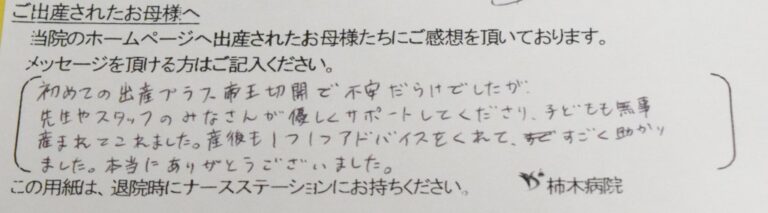 ご出産されたお母様へ
当院のホームページへ出産されたお母様たちにご感想を頂いております。
メッセージを頂ける方はご記入ください。
初めての出産プラス帝王切開で不安だらけでしたが
先生やスタッフのみなさんが優しくサポートしてくださり、子どもも無事
産まれてこれました。産後も1つ1つアドバイスをくれて、すごく助かり
ました。本当にありがとうございました。
この用紙は、退院時にナースステーションにお持ちください。 柿木病院